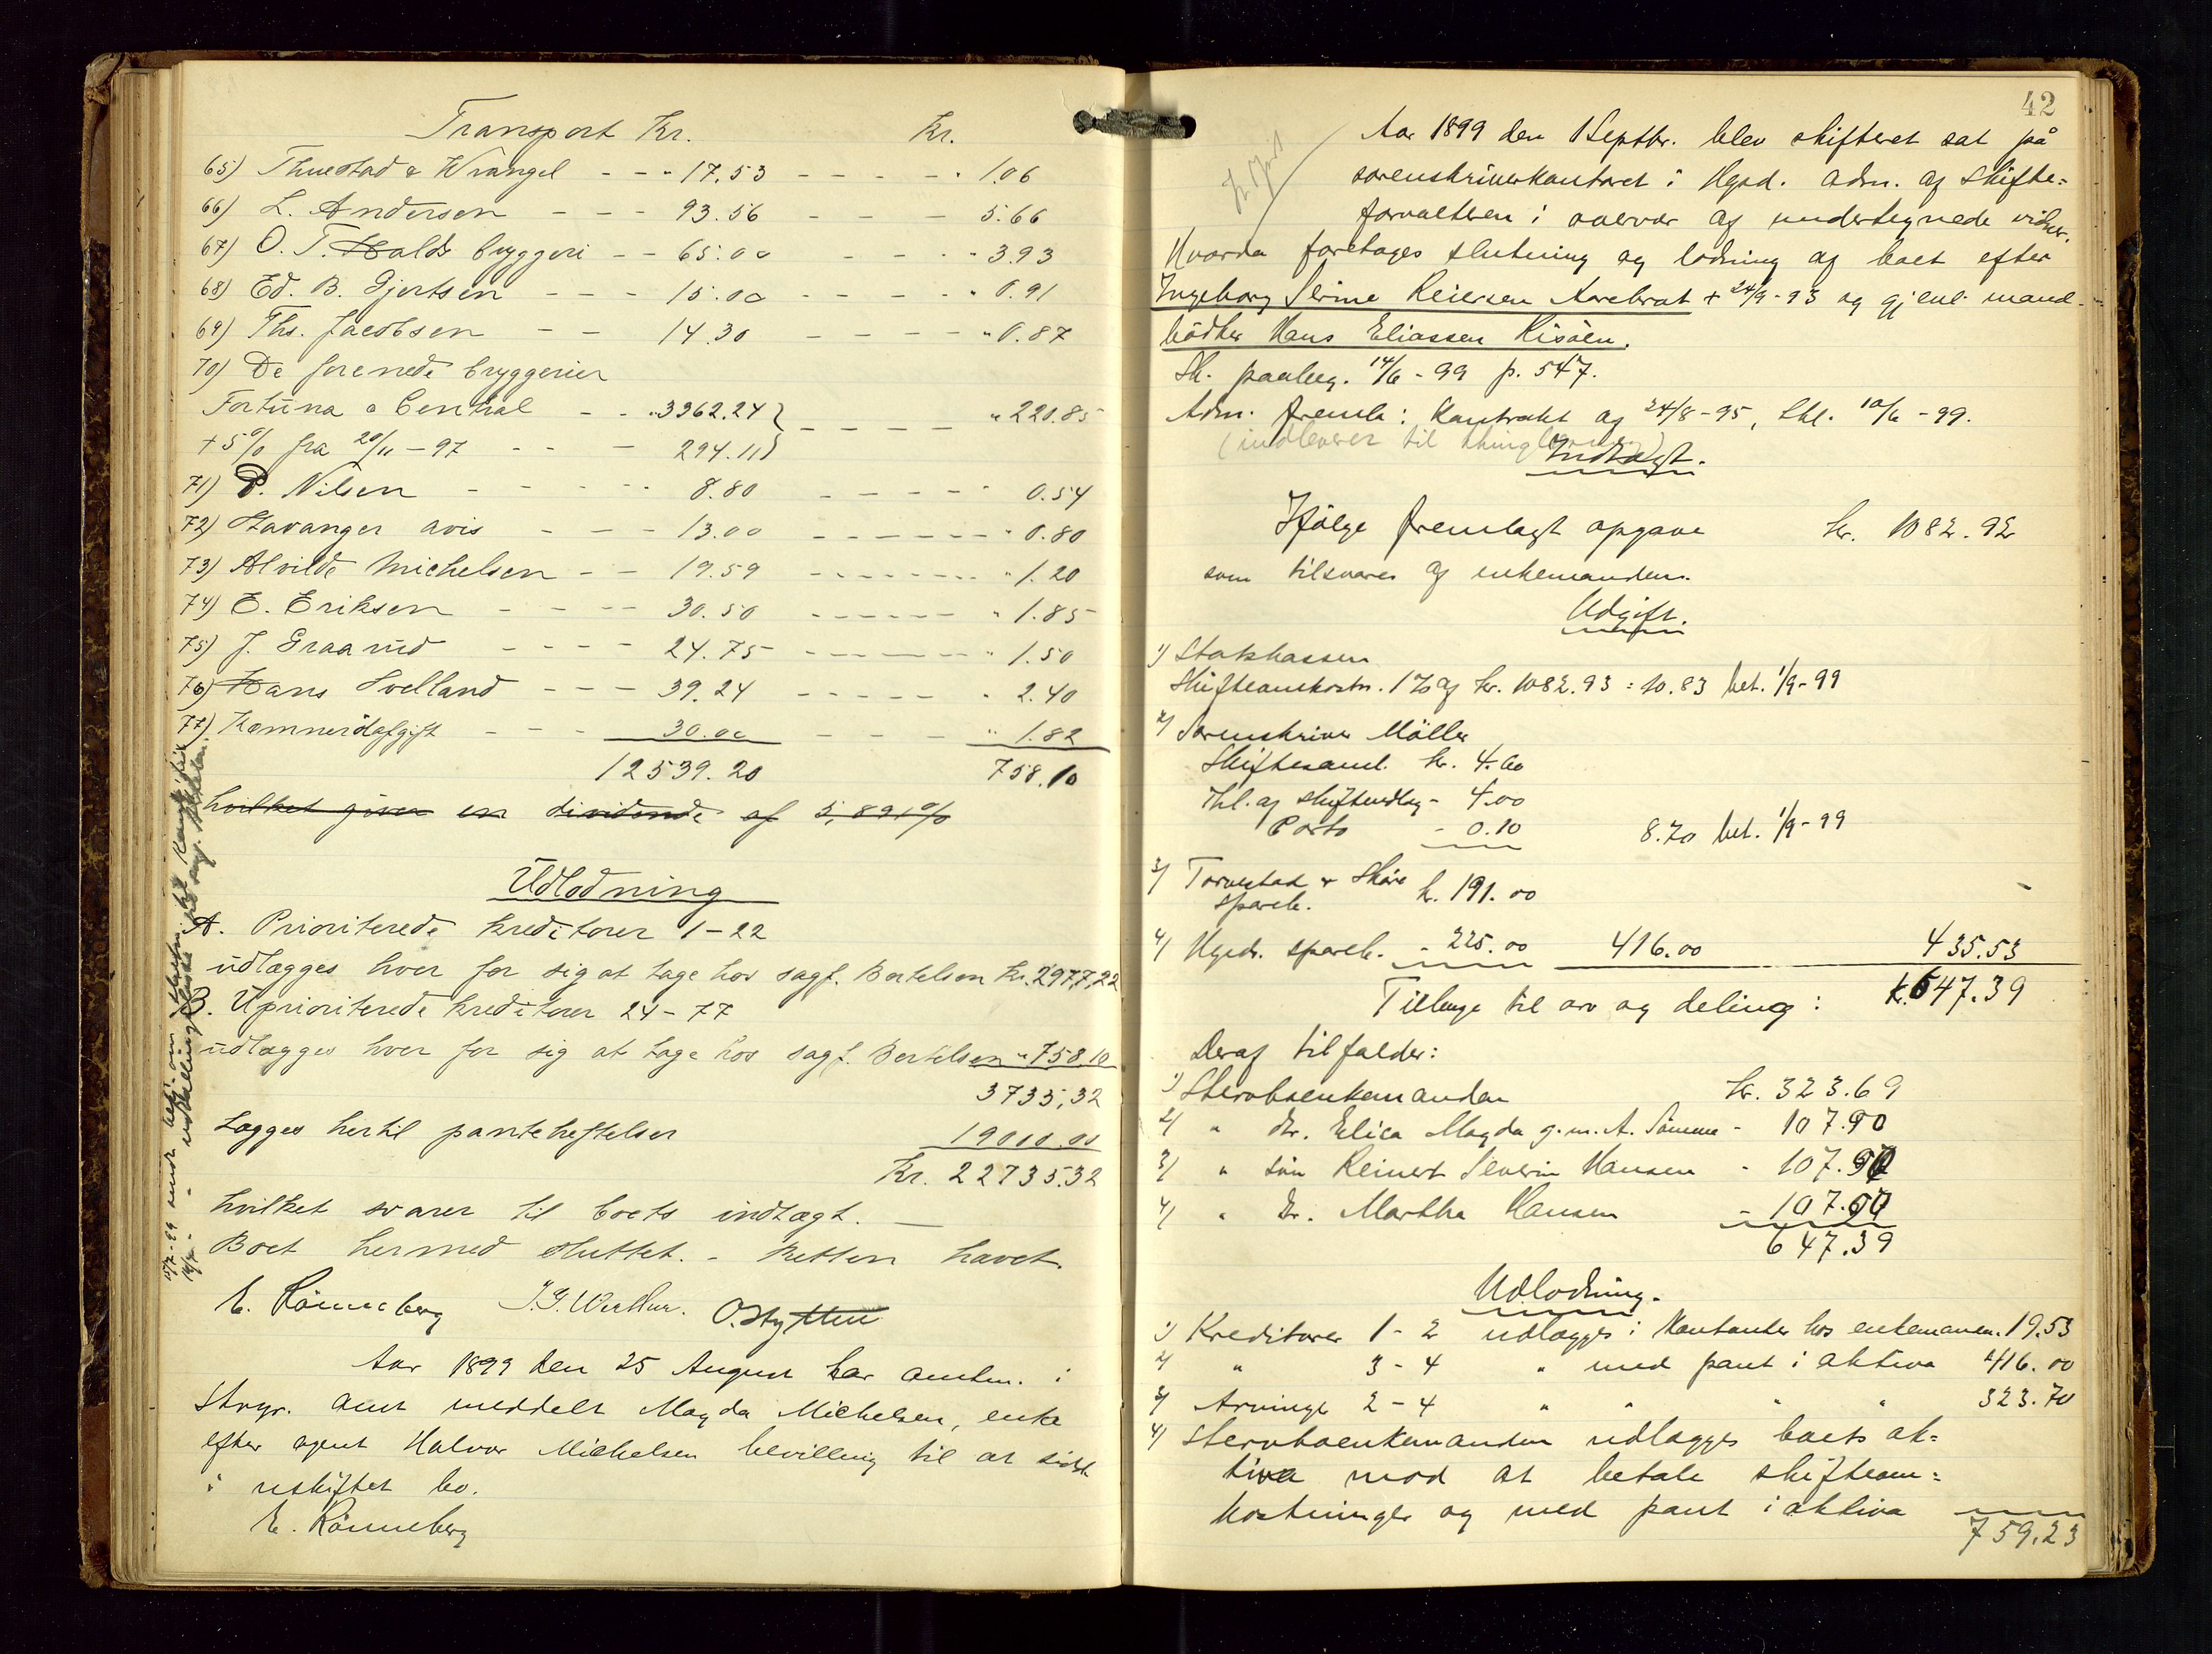 Transport Kr. Kr.
65) Thuestad & Wrangel - - - 17.53 - - - - - " 1.06
66) L. Andersen - - - 93.56 - - - 5.66
67) O. T. Holds bryggeri - - 65.00 - - - " 3.93
68) Ed. B. Gjertsen - - - 15.00 - - - - - " 0.91
69) Ths. Jacobsen - - 14.30 - - - - " 0.87
70) De forenede bryggerier
Fortuna & Central - - " 3362.24 } - - - - " 220.85
+ 5% fra 20/11 - 97 - - - 294.11 }
71) P. Nilsen - - - - - 8.80 - - - - - " 0.54
72) Stavanger avis - - - 13.00 - - - - - - " 0.80
73) Alvilde Michelsen - - 19.59 - - - - - - - " 1.20
74) E. Eriksen - - - - 30.50 - - - - - " 1.85
75) J. Graarud - - - - 24.75 - - - - - - " 1.50
76) Hans Hvelland - - - 39.24 - - - - - " 2.40
77) Kæmnerafgift - - - 30.00 - - - - " 1.82
12539.20 758.10
hvilket giver en dividende af 5,891%
Udlodning
A. Prioriterede kreditorer 1-22
udlægges hver for sig at tage hos sagf. Bertelsen Kr. 2977,22
B. Uprioriterede kreditorer 24-77
udlægges hver for sig at tage hos sagf. Bertelsen " 758.10
3735,32
Lægges hertil panteheftelser 19000.00
Kr. 22735.32
hvilket svarer til boets indtægt. —
Boet hermed sluttet. - Retten hævet.
E. Rønneberg
Aar 1899 den 25 August har amtm. i
Stvgr. amt meddelt Magda Michelsen, enke
efter agent Halvor Michelsen bevilling til at sidde
i uskiftet bo.
E. Rønneberg
42
Aar 1899 den 1 Septbr. blev skifteret sat på
sorenskriverkontoret i Hgsd. adm. af skifte=
forvalteren i overvær af undertegnede vidner.
Hvorda foretages slutning og lodning af boet efter
Ingeborg Serine Reiersen Aarebrot + 24/9 - 93 og gjenl. mand
bødker Hans Eliassen Risøen.
Sk. paabeg. 14/6 - 99 p. 547.
Adm. freml: Kontrakt af 24/8 - 95, thl. 10/6 - 99.
(indleverer til thinglæsning)
Indtægt.
Ifølge fremlagt opgave kr. 1082.92
som tilsvares af enkemanden.
Udgift.
1) Statskassen
Skifteomkostn. 1% af kr. 1082.93 = 10.83 bet. 1/9 - 99
2) Sorenskriver Møller
Skiftesaml. kr. 4.60
Thl. af skifteudlæg - 4.00
Porto - 0.10 8.70 bet. 1/9 - 99
3) Torvestad & Skåre
spareb. kr. 191.00
4) Hgsds. spareb. - 225.00 416.00 435.53
Tilbage til arv og deling: kr. 647.39
Deraf tilfalder:
1) Stervboenkemanden kr. 323.69
2) " dtr. Elisa Magda g.m. A. Sømme - 107.90
3) " søn Reinert Severin Hansen - 107.90
4) " Dr. Martha Hansen - 107.90
647.39
Udlodning.
1) Kreditorer 1-2 udlægges i kontanter hos enkemanden. 19.53
2) " 3-4 " med pant i aktiva 416.00
3) Arvinger 2-4 " " " " 323.70
4) Stervboenkemanden udlægges boets ak=
tiva mod at betale skifteom=
kostninger og med pant i aktiva
759.23